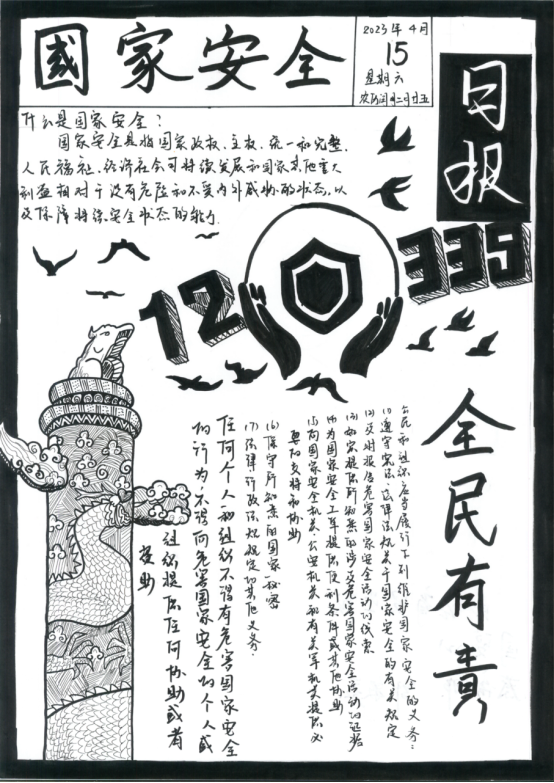 國家安全
2023年4月
15
星期六
农历闰二月廿五
日报
什么是国家安全？
国家安全是指国家政权、主权、统一和完整、
人民福祉、经济社会可持续发展和国家其他重大
利益相对于没有危险和不受内外威胁的状态，以
及保障持续安全状态的能力。
12339
全民有責
公民和组织应当履行下列维护国家安全的义务：
(1)遵守宪法、法律法规关于国家安全的有关规定
(2)及时报告危害国家安全活动的线索
(3)如实提供所知悉的涉及危害国家安全活动的证据
(4)为国家安全工作提供便利条件或其他协助
(5)向国家安全机关、公安机关和有关军事机关提供必
要的支持和协助
(6)保守所知悉的国家秘密
(7)法律行政法规规定的其他义务。
任何个人和组织不得有危害国家安全
的行为，不得向危害国家安全的个人或
组织提供任何协助或者
资助